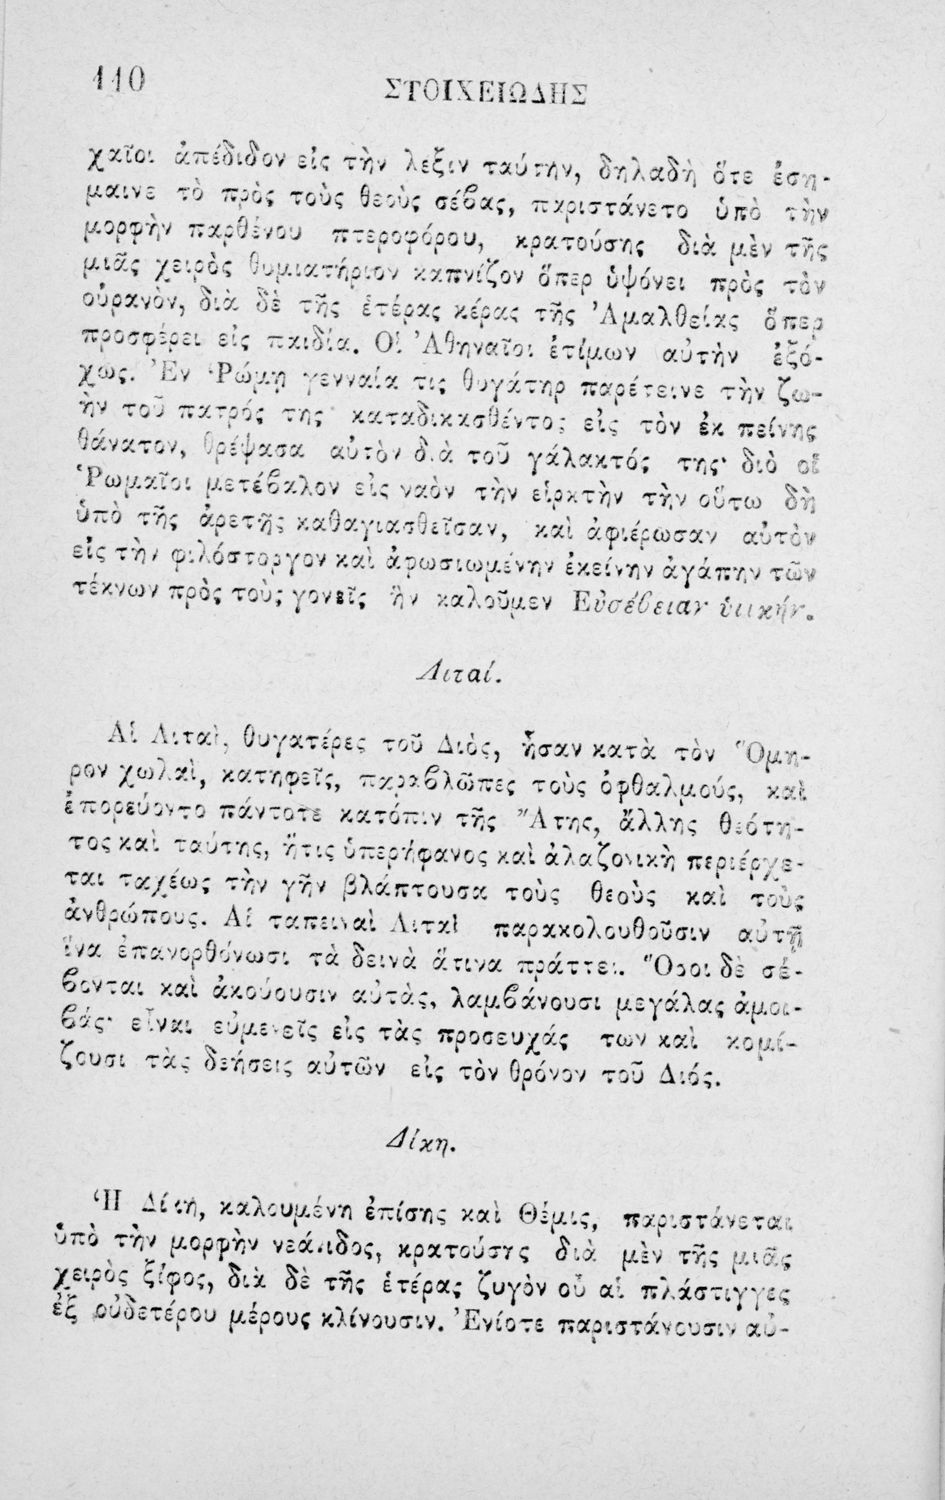 110
ΣΤΟΙΧΕΙΩΔΗΣ
χαῖοι ἀπέδιδον εἰς τὴν λεξιν ταύτην, δηλαδὴ ὅτε ἐση-
μαινε τὸ πρὸς τοὺς θεοὺς σέβας, παριστάνετο ὑπὸ τὴν
μορφὴν παρθένου πτεροφόρου, κρατούσης διὰ μὲν τῆς
μιᾶς χειρὸς θυμιατήριον καπνίζον ὅπερ ὑψόνει πρὸς τὸν
οὐρανὸν, διὰ δὲ τῆς ἑτέρας κέρας τῆς Ἀμαλθείας ὅπερ
προσφέρει εἰς παιδία. Οἱ Ἀθηναῖοι ἐτίμων αὐτὴν ἐξό-
χως. Ἐν Ῥώμῃ γενναία τις θυγάτηρ παρέτεινε τὴν ζω-
ὴν τοῦ πατρός της καταδικασθέντος εἰς τὸν ἐκ πείνης
θάνατον, θρέψασα αὐτὸν διὰ τοῦ γάλακτός της· διὸ οἱ
Ῥωμαῖοι μετέβαλον εἰς ναὸν τὴν εἱρκτὴν τὴν οὕτω δὴ
ὑπὸ τῆς ἀρετῆς καθαγιασθεῖσαν, καὶ ἀφιέρωσαν αὐτὸν
εἰς τὴν φιλόστοργον καὶ ἀφωσιωμένην ἐκείνην ἀγάπην τῶν
τέκνων πρὸς τοὺς γονεῖς ἣν καλοῦμεν Εὐσέβειαν ὑιικήν.
Λιταί.
Αἱ Λιταὶ, θυγατέρες τοῦ Διὸς, ἦσαν κατὰ τὸν Ὅμη-
ρον χωλαὶ, κατηφεῖς, παραβλῶπες τοὺς ὀφθαλμούς, καὶ
ἐπορεύοντο πάντοτε κατόπιν τῆς Ἄτης, ἄλλης θεότη-
τος καὶ ταύτης, ἥτις ὑπερήφανος καὶ ἀλαζονικὴ περιέρχε-
ται ταχέως τὴν γῆν βλάπτουσα τοὺς θεοὺς καὶ τοὺς
ἀνθρώπους. Αἱ ταπειναὶ Λιταὶ παρακολουθοῦσιν αὐτῇ
ἵνα ἐπανορθόνωσι τὰ δεινὰ ἅτινα πράττει. Ὅσοι δὲ σέ-
βονται καὶ ἀκούουσιν αὐτὰς, λαμβάνουσι μεγάλας ἀμοι-
βάς· εἶναι εὐμενεῖς εἰς τὰς προσευχάς των καὶ κομί-
ζουσι τὰς δεήσεις αὐτῶν εἰς τὸν θρόνον τοῦ Διός.
Δίκη.
Ἡ Δίκη, καλουμένη ἐπίσης καὶ Θέμις, παριστάνεται
ὑπὸ τὴν μορφὴν νεάνιδος, κρατούσης διὰ μὲν τῆς μιᾶς
χειρὸς ξίφος, διὰ δὲ τῆς ἑτέρας ζυγὸν οὗ αἱ πλάστιγγες
ἐξ οὐδετέρου μέρους κλίνουσιν. Ἐνίοτε παριστάνουσιν αὐ-